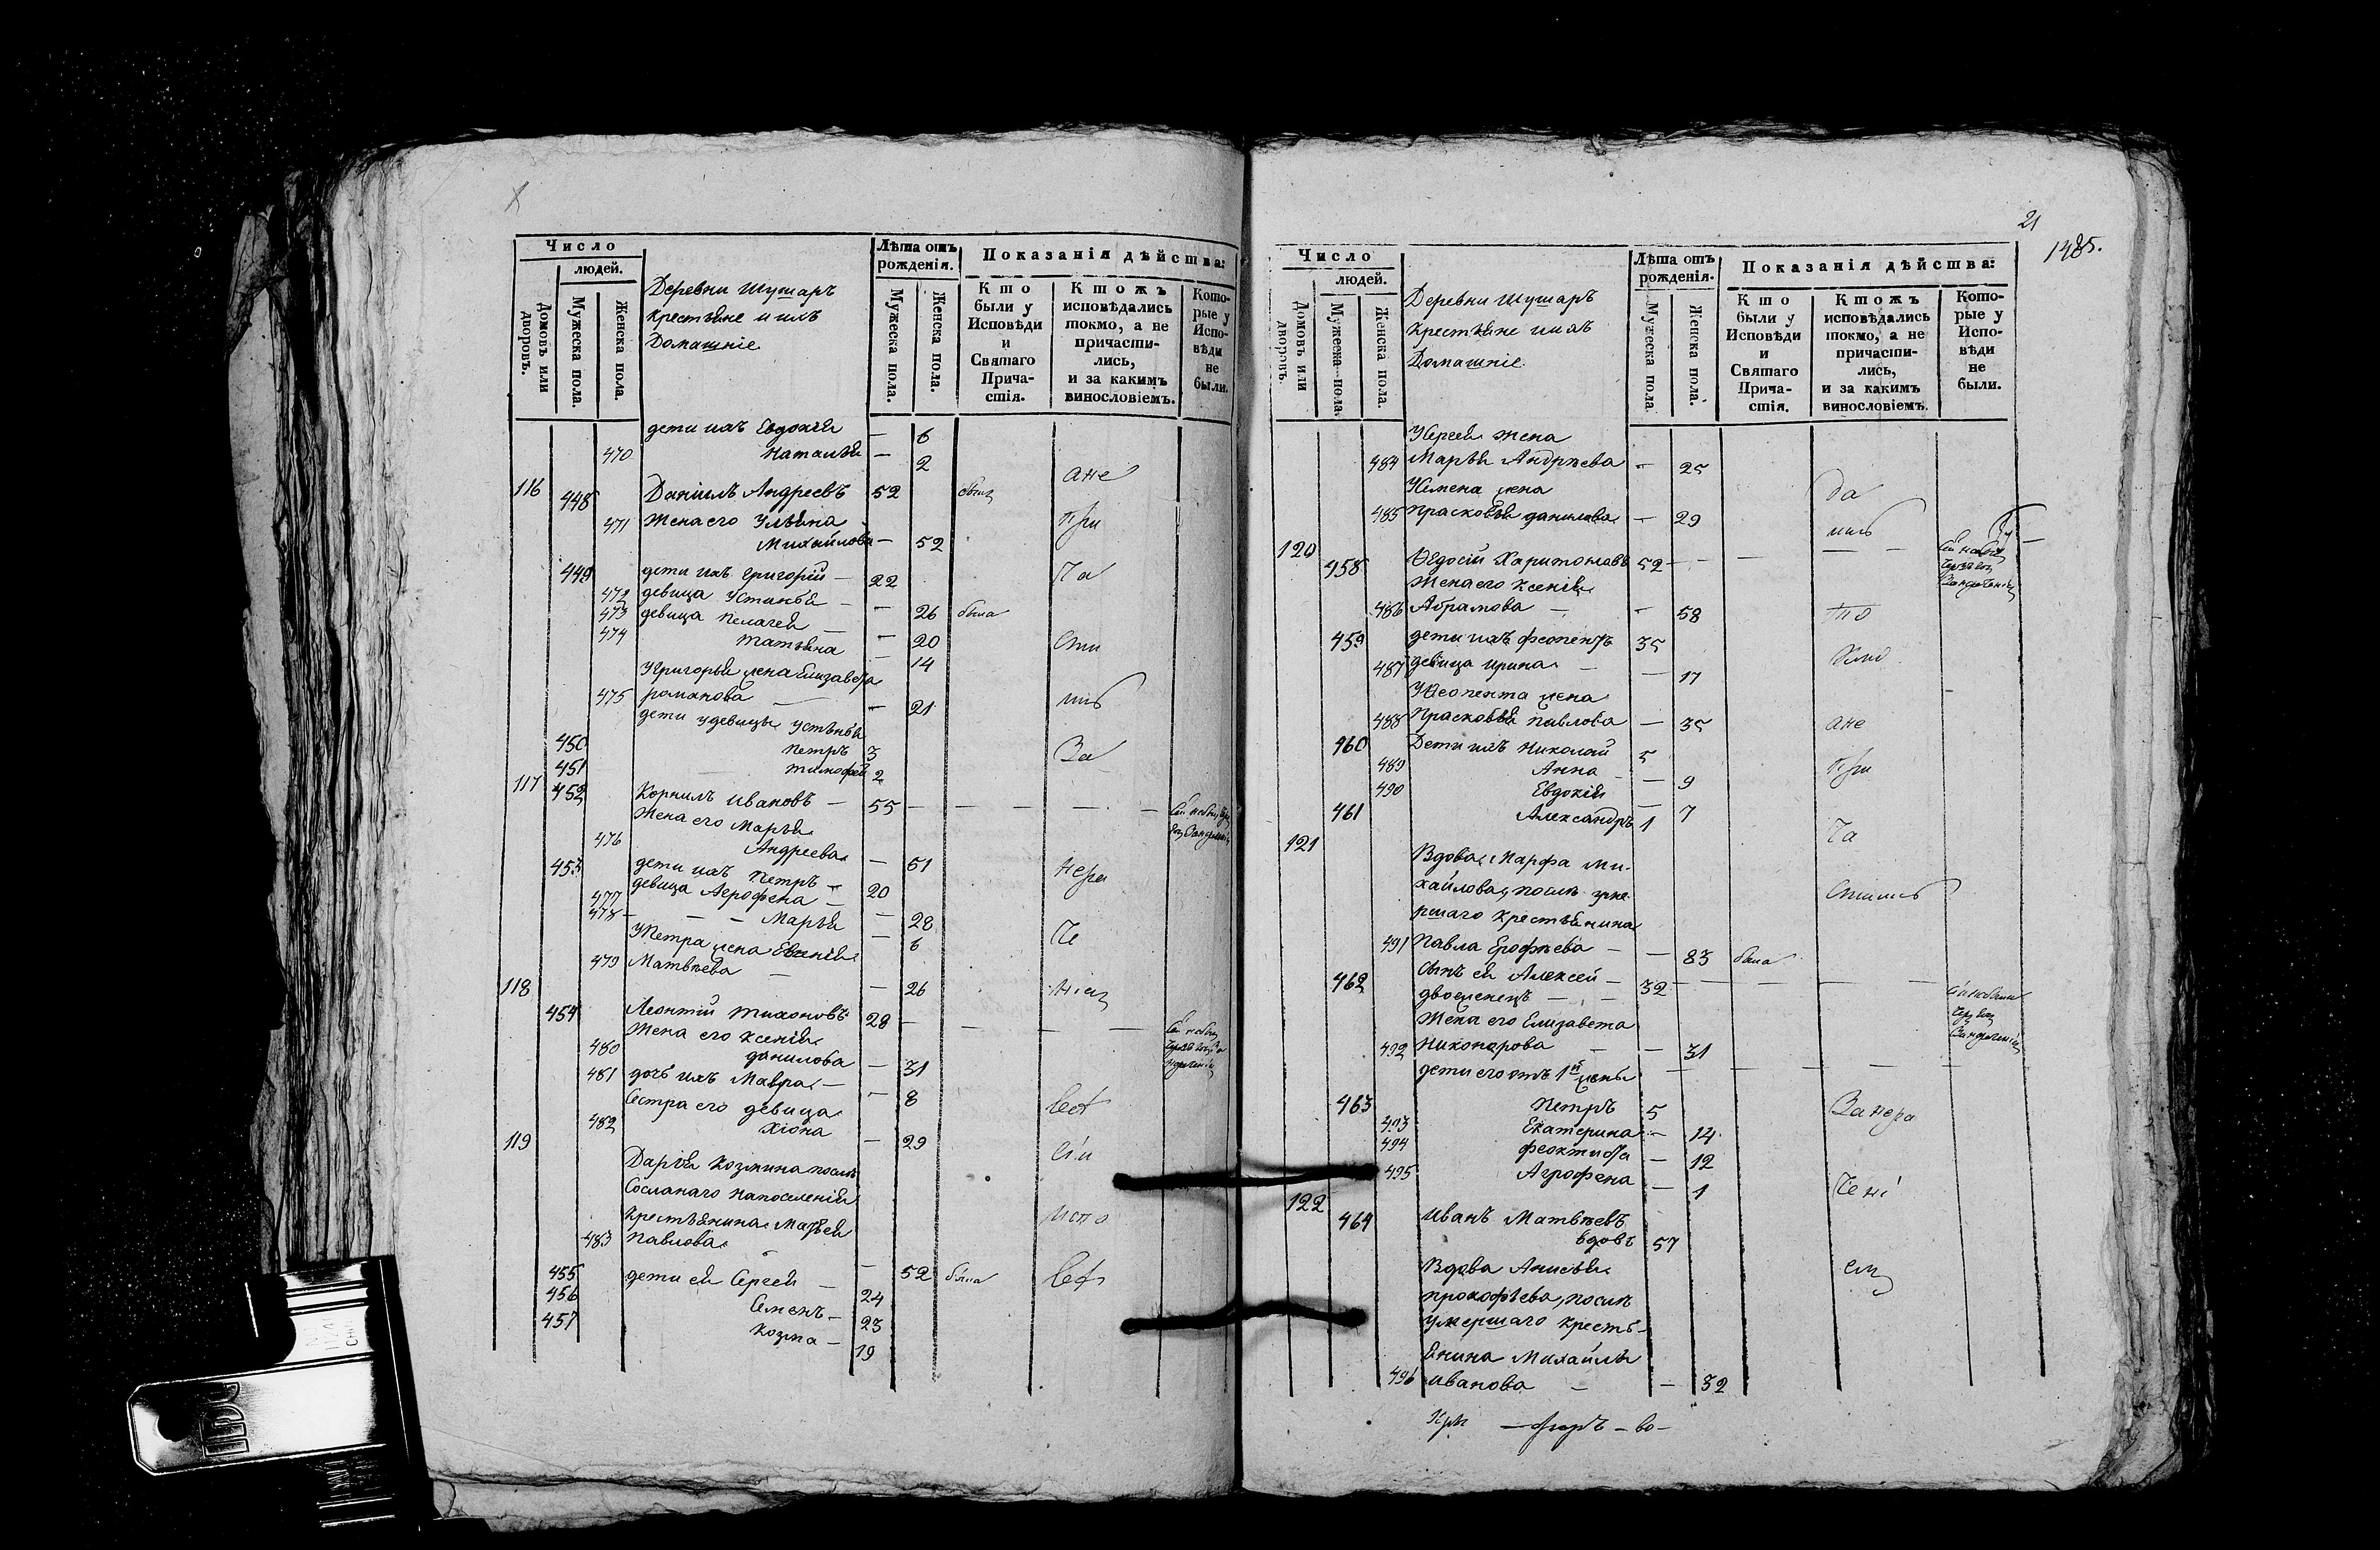 Число
людей.
Домовъ или дворовъ.
Мужеска пола.
Женска пола.
Деревни Шушаръ
крестьяне и ихъ
Домашніе
Лѣта отъ
рожденія.
Мужеска пола.
Женска пола.
Показанія дѣйства:
Кто
были у
Исповѣди
и
Святаго
Прича-
стія.
Ктожъ
исповѣдались
токмо, а не
причасти-
лись,
и за какимъ
винословіемъ.
Кото-
рые у
Испо-
вѣди
не
были.
дети ихъ Евдокія — 6
470 Наталья — 2
ане
116 448 Даніилъ Андреевъ 52
471 Жена его Ульяна
Михайлова — 52
при
449 дети ихъ Григорій — 22
ча
472 девица Устинья — — 26 была
473 девица Пелагея — — 20
474 Татьяна — 14
сти
У Григорья жена Елизавета
475 романова — — 21
лись
дети у девицы Устиньи
450 Петръ 3
За
451 Тимофей 2
117 452 Корнилъ Ивановъ — 55 — — — — —
Жена его Марья
476 Андреева — 51
453 дети ихъ Петръ — 20
нера
477 девица Агрофена — — 28
478 — — — Марья — 6
че
У Петра жена Евгенія
479 Матвѣева — — 26
ніем
118
454 Леонтій Тихоновъ 28 — — — —
Жена его Ксенія
480 данилова — 31
481 дочь ихъ Мавра — — 8
Сестра его девица
482 Хіона — 29
119
Дарья Козмина послѣ
Сосланаго на поселеніе
крестьянина Матвея
483 Павлова — 52 была
455 дети ея Сергей — 24
456 Семенъ — 23
457 Козма — 19
21
1485.
Число
людей.
Домовъ или дворовъ.
Мужеска пола.
Женска пола.
Деревни Шушаръ
крестьяне и ихъ
Домашніе
Лѣта отъ
рожденія.
Мужеска пола.
Женска пола.
Показанія дѣйства:
Кто
были у
Исповѣди
и
Святаго
Прича-
стія.
Ктожъ
исповѣдались
токмо, а не
причасти-
лись,
и за какимъ
винословіемъ.
Кото-
рые у
Испо-
вѣди
не
были.
У Сергея жена
484 Марья Андрѣева — 25
У Семена жена
да
485 Прасковья данилова — 29
лись
120 458 Ѳедосій Харитоновъ 52 — — — —
Жена его Ксенія
486 Абрамова — — 58
то
459 дети ихъ 35
487 девица Ирина — — 17
кмо
жена
488 Прасковья Павлова — 35
ане
460 Дети ихъ Николай 5
489 Анна — — 9
при
490 Евдокія — 7
461 Александръ 1
ча
121
Вдова Марфа Ми-
хайлова, послѣ уме-
ршаго крестьянина
стились
491 Павла Ерофѣева — — 83 была
462 Сынъ ея Алексей — 32 — — — —
двоеженецъ — —
Жена его Елизавета
492 Никонорова — — 31
дети его отъ 1й жены — — — —
463 Петръ 5
За нера
493 Екатерина — 14
494 Феоктиста — 12
495 Агрофена — 1
чені
122
464 Иванъ Матвѣевъ
вдовъ 57
Вдова Анисья
ем
прокофьева, послѣ
умершаго кресть-
янина Михайлы
496 Иванова — — 32